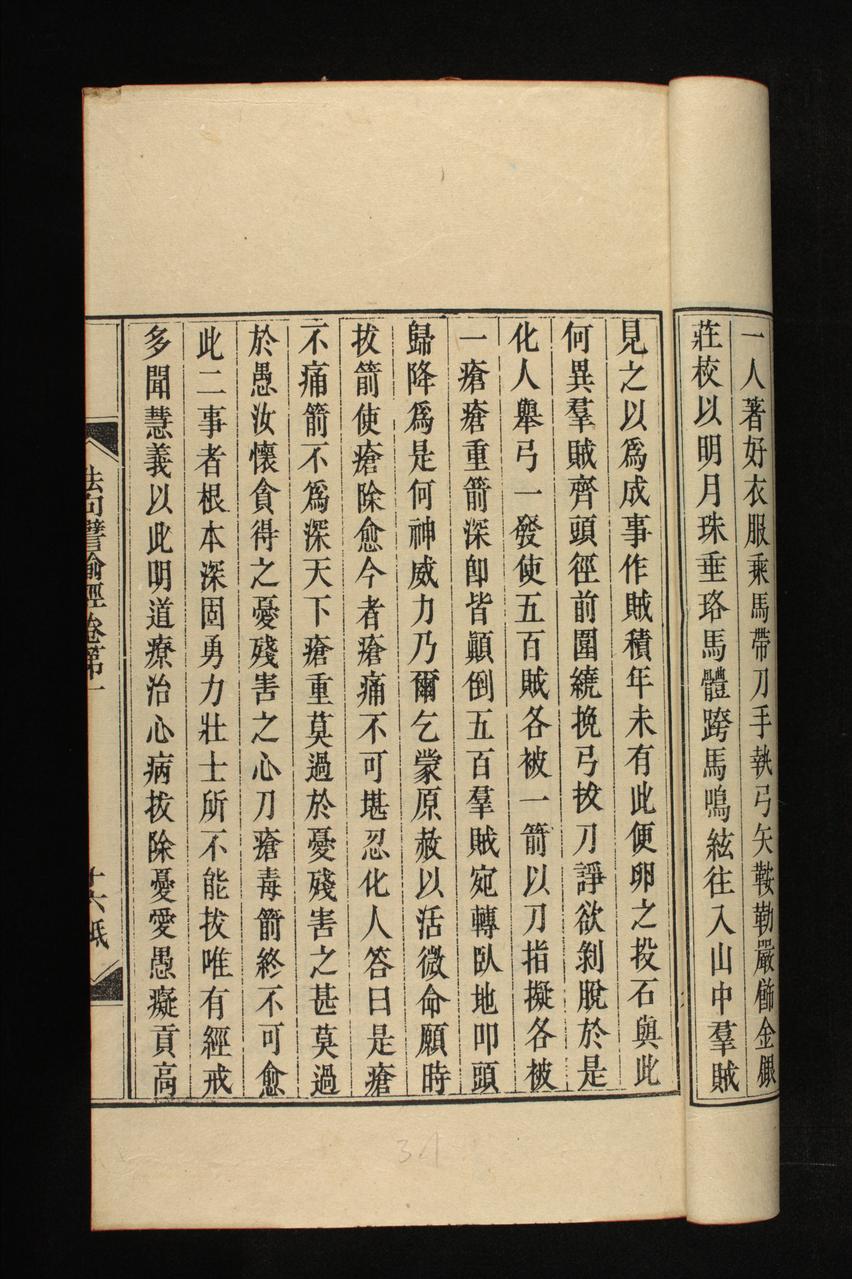 一人著好衣服乘馬帶刀手執弓矢鞍勒嚴飾金銀
莊校以明月珠垂珞馬體跨馬鳴絃往入山中羣賊
見之以爲成事作賊積年未有此便卵之投石與此
何異羣賊齊頭徑前圍繞挽弓拔刀諍欲剝脫於是
化人舉弓一發使五百賊各被一箭以刀指擬各被
一瘡瘡重箭深卽皆顚倒五百羣賊宛轉臥地叩頭
歸降爲是何神威力乃爾乞蒙原赦以活微命願時
拔箭使瘡除愈今者瘡痛不可堪忍化人答曰是瘡
不痛箭不爲深天下瘡重莫過於憂殘害之甚莫過
於愚汝懷貪得之憂殘害之心刀瘡毒箭終不可愈
此二事者根本深固勇力壯士所不能拔唯有經戒
多聞慧義以此明道療治心病拔除憂愛愚癡貢高
法句譬喻經卷第一
十六紙
31